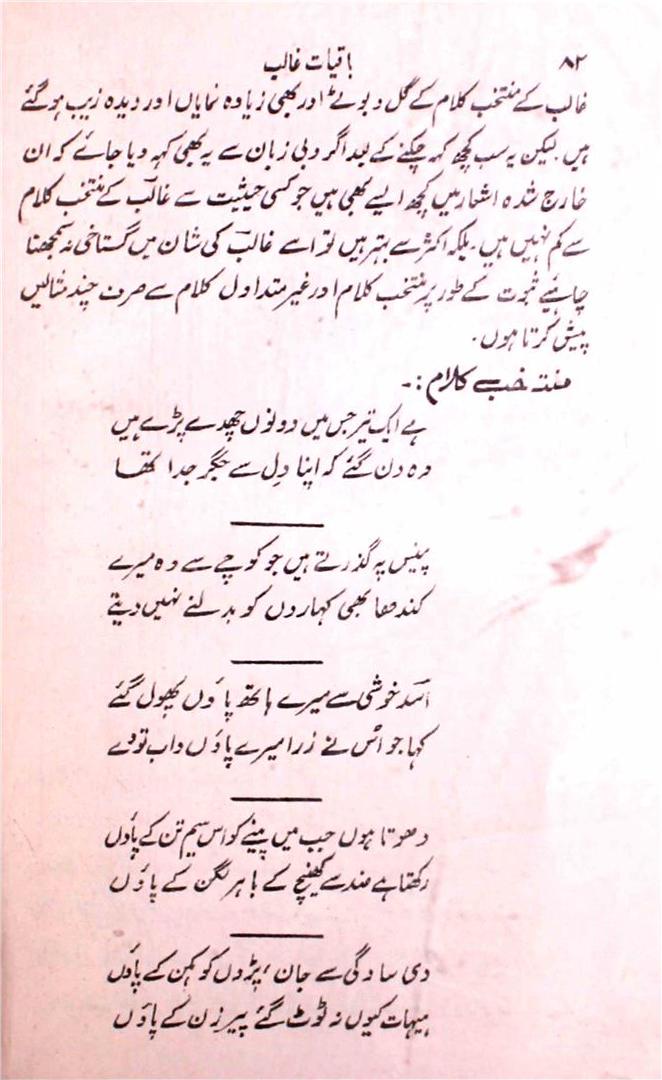 ۸۲
باقیات غالب
غالب کے منتخب کلام کے گل و بوٹے اور بھی زیادہ نمایاں اور دیدہ زیب ہو گئے
ہیں۔ لیکن یہ سب کچھ کہہ چکنے کے بعد اگر دبی زبان سے یہ بھی کہہ دیا جائے کہ ان
خارج شدہ اشعار میں کچھ ایسے بھی ہیں جو کسی حیثیت سے غالبؔ کے منتخب کلام
سے کم نہیں ہیں۔ بلکہ اکثر سے بہتر ہیں تو اسے غالبؔ کی شان میں گستاخی نہ سمجھنا
چاہئیے ثبوت کے طور پر منتخب کلام اور غیر متداول کلام سے صرف چند مثالیں
پیش کرتا ہوں۔
منتخب کلام :۔
ہے ایک تیر جس میں دونوں چھدے پڑے ہیں
وہ دن گئے کہ اپنا دِل سے جگر جدا تھا
پینس پہ گذرتے ہیں جو کوچے سے وہ میرے
کندھا بھی کہاروں کو بدلنے نہیں دیتے
اسدؔ خوشی سے میرے ہاتھ پاؤں پھول گئے
کہا جو اُس نے زرا میرے پاؤں داب تو دے
دھوتا ہوں جب میں پینے کو اس سیم تن کے پاؤں
رکھتا ہے ضد سے کھینچ کے باہر لگن کے پاؤں
دی سادگی سے جان، پڑوں کوہکن کے پاؤں
ہیہات کیوں نہ ٹوٹ گئے پیر زن کے پاؤں